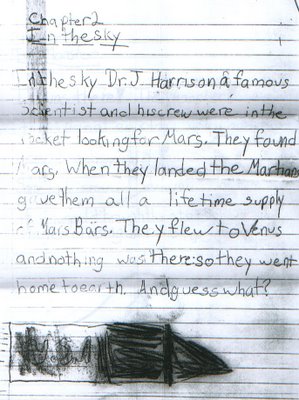 Chapter 2
In the sky
In the sky Dr. J. Harrison a famous
Scientist and his crew were in the
rocket looking for Mars. They found
Mars. When they landed the Martians
gave them all a lifetime supply
of Mars Bars. They flew to Venus
and nothing was there so they went
home to earth. And guess what?